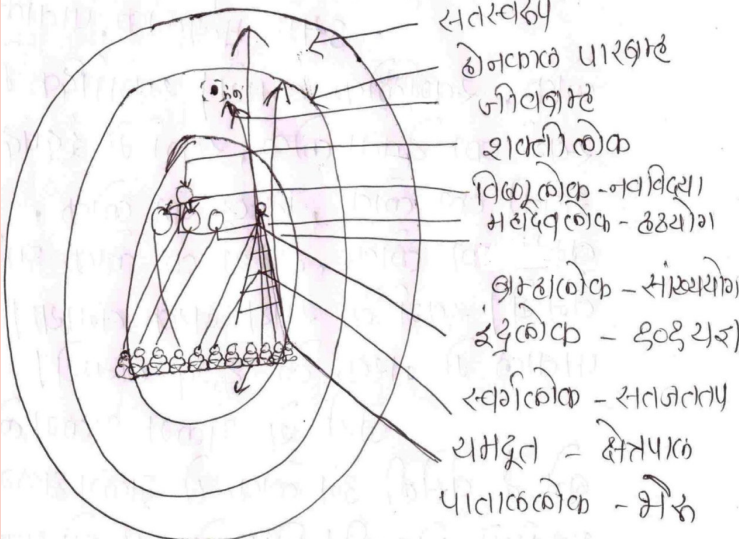 सतस्वरूप
होनकाळ पारब्रम्ह
जीवब्रम्ह
शक्तीलोक
विष्णूलोक - नवविद्या
महादेवलोक - हठयोग
ब्रम्हालोक - सांख्ययोग
इंद्रलोक - १०१ यज्ञ
स्वर्गलोक - सतजततप
यमदूत - क्षेत्रपाळ
पाताळलोक - भेरू